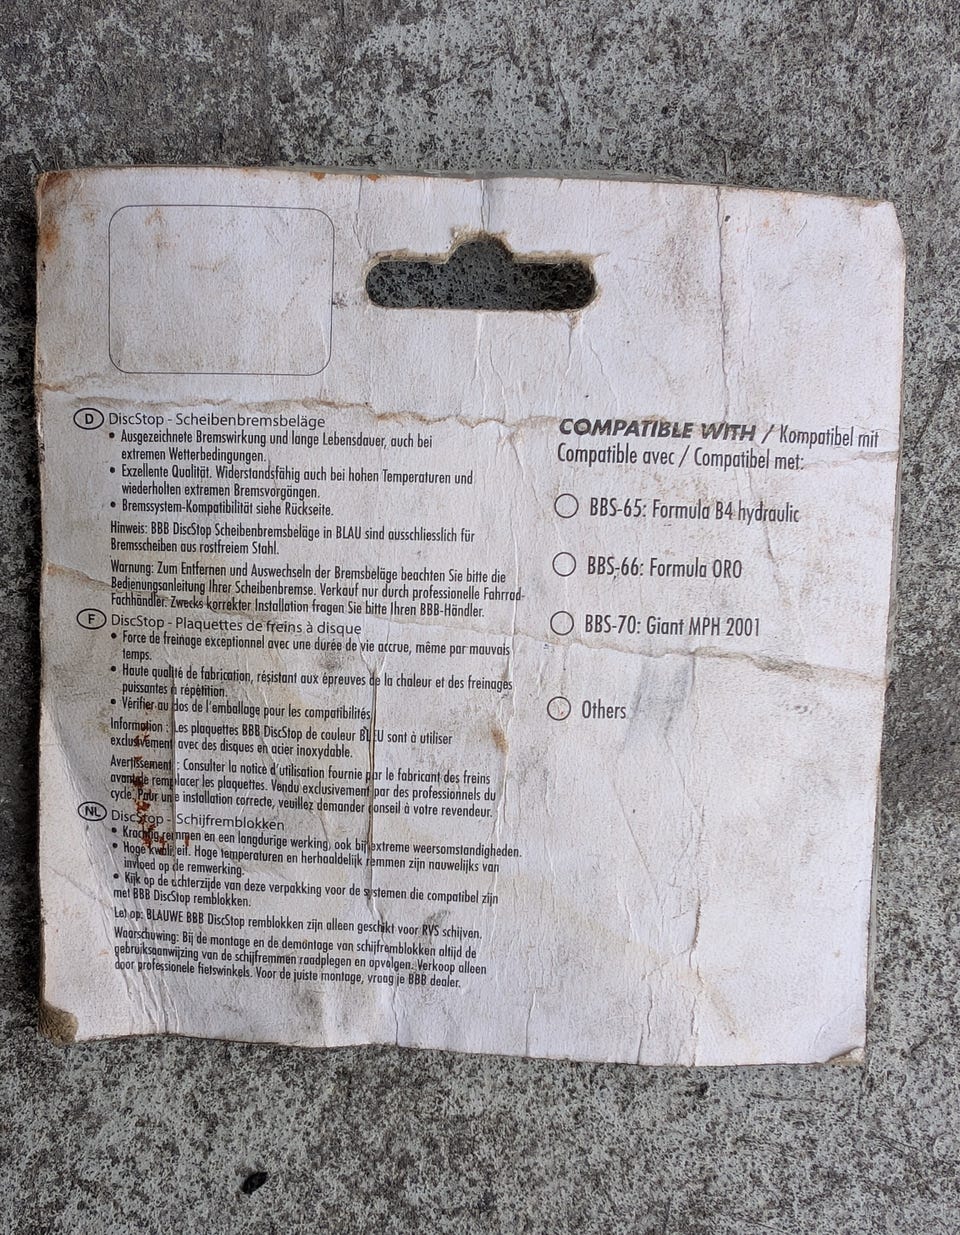 D DiscStop - Scheibenbremsbeläge
• Ausgezeichnete Bremswirkung und lange Lebensdauer, auch bei
extremen Wetterbedingungen.
• Exzellente Qualität. Widerstandsfähig auch bei hohen Temperaturen und
wiederholten extremen Bremsvorgängen.
• Bremssystem-Kompatibilität siehe Rückseite.
Hinweis: BBB DiscStop Scheibenbremsbeläge in BLAU sind ausschliesslich für
Bremsscheiben aus rostfreiem Stahl.
Warnung: Zum Entfernen und Auswechseln der Bremsbeläge beachten Sie bitte die
Bedienungsanleitung Ihrer Scheibenbremse. Verkauf nur durch professionelle Fahrrad-
Fachhändler. Zwecks korrekter Installation fragen Sie bitte Ihren BBB-Händler.
F DiscStop - Plaquettes de freins à disque
• Force de freinage exceptionnel avec une durée de vie accrue, même par mauvais
temps.
• Haute qualité de fabrication, résistant aux épreuves de la chaleur et des freinages
puissantes à répétition.
• Vérifier au dos de l'emballage pour les compatibilités
Information : Les plaquettes BBB DiscStop de couleur BLEU sont à utiliser
exclusivement avec des disques en acier inoxydable.
Avertissement : Consulter la notice d'utilisation fournie par le fabricant des freins
avant de remplacer les plaquettes. Vendu exclusivement par des professionnels du
cycle. Pour une installation correcte, veuillez demander conseil à votre revendeur.
NL DiscStop - Schijfremblokken
• Krachtig remmen en een langdurige werking, ook bij extreme weersomstandigheden.
• Hoge kwaliteit. Hoge temperaturen en herhaaldelijk remmen zijn nauwelijks van
invloed op de remwerking.
• Kijk op de achterzijde van deze verpakking voor de systemen die compatibel zijn
met BBB DiscStop remblokken.
Let op: BLAUWE BBB DiscStop remblokken zijn alleen geschikt voor RVS schijven.
Waarschuwing: Bij de montage en de demontage van schijfremblokken altijd de
gebruiksaanwijzing van de schijfremmen raadplegen en opvolgen. Verkoop alleen
door professionele fietswinkels. Voor de juiste montage, vraag je BBB dealer.
COMPATIBLE WITH / Kompatibel mit
Compatible avec / Compatibel met:
BBS-65: Formula B4 hydraulic
BBS-66: Formula ORO
BBS-70: Giant MPH 2001
Others